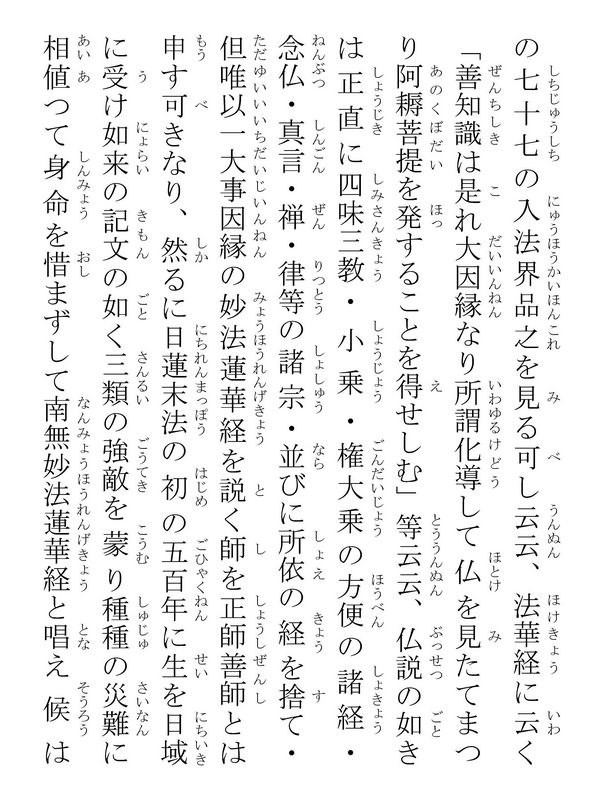 の七十七の入法界品之を見る可し云云、法華経に云く
「善知識は是れ大因縁なり所謂化導して仏を見たてまつ
り阿耨菩提を発することを得せしむ」等云云、仏説の如き
は正直に四味三教・小乗・権大乗の方便の諸経・
念仏・真言・禅・律等の諸宗・並びに所依の経を捨て・
但唯以一大事因縁の妙法蓮華経を説く師を正師善師とは
申す可きなり、然るに日蓮末法の初の五百年に生を日域
に受け如来の記文の如く三類の強敵を蒙り種種の災難に
相値つて身命を惜まずして南無妙法蓮華経と唱え候は